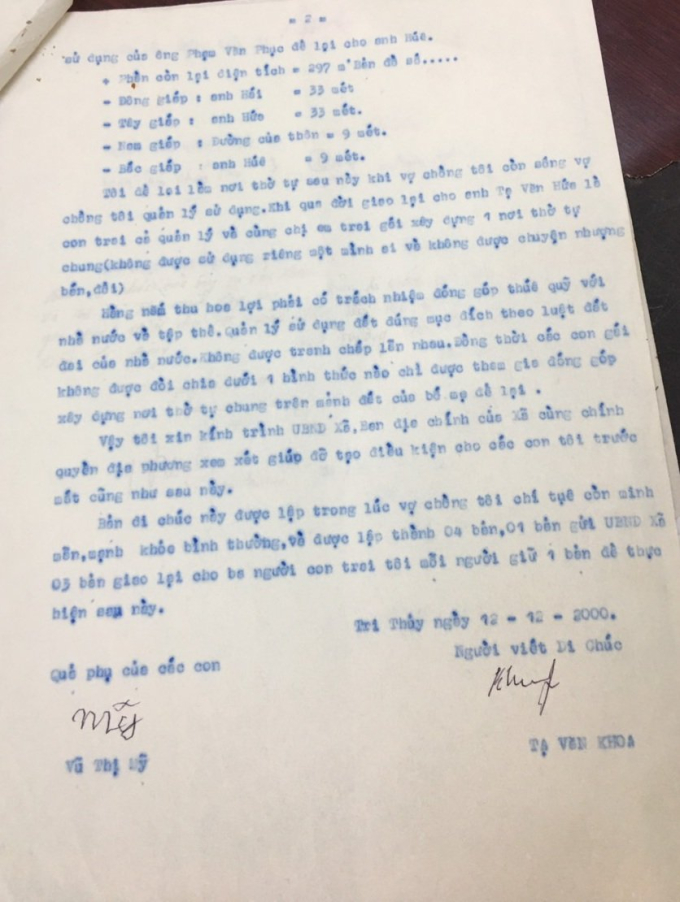 = 2 =
sử dụng của ông Phạm Văn Phục để lại cho anh Húê.
+ Phần còn lại diện tích = 297 m² Bản đồ số.....
- Đông giáp : anh Hải = 33 mét
- Tây giáp : anh Hứa = 33 mét.
- Nam giáp : Đường của thôn = 9 mét.
- Bắc giáp : anh Húê = 9 mét.
Tôi để lại làm nơi thờ tự sau này khi vợ chồng tôi còn sống vợ
chồng tôi quản lý sử dụng.Khi qua đời giao lại cho anh Tạ Văn Hứa là
con trai cả quản lý và cùng chị em trai gái xây dựng 1 nơi thờ tự
chung(không được sử dụng riêng một mình ai và không được chuyện nhượng
bán,đổi)
Hàng năm thu hoa lợi phải có trách nhiệm đóng góp thúê quỹ với
nhà nước và tập thể.Quản lý sử dụng đất đúng mục đích theo luật đất
đai của nhà nước.Không được tranh chấp lẫn nhau.Đồng thời các con gái
không được đòi chia dưới 1 hình thức nào chỉ được tham gia đóng góp
xây dựng nơi thờ tự chung trên mảnh đất của bố mẹ để lại .
Vậy tôi xin kính trình UBND Xã,Ban địa chính của Xã cùng chính
quyền địa phương xem xét giúp đỡ tạo điều kiện cho các con tôi trước
mắt cũng như sau này.
Bản di chúc này được lập trong lúc vợ chồng tôi chí tụê còn minh
mẫn,mạnh khỏe bình thường,và được lập thành 04 bản,01 bản gửi UBND Xã
03 bản giao lại cho ba người con trai tôi mỗi người giữ 1 bản để thực
hiện sau này.
Tri Thủy ngày 12 - 12 - 2000.
Quả phụ của các con
Người viết Di Chúc
Mỹ
Khoa
Vũ Thị Mỹ
TẠ VĂN KHOA